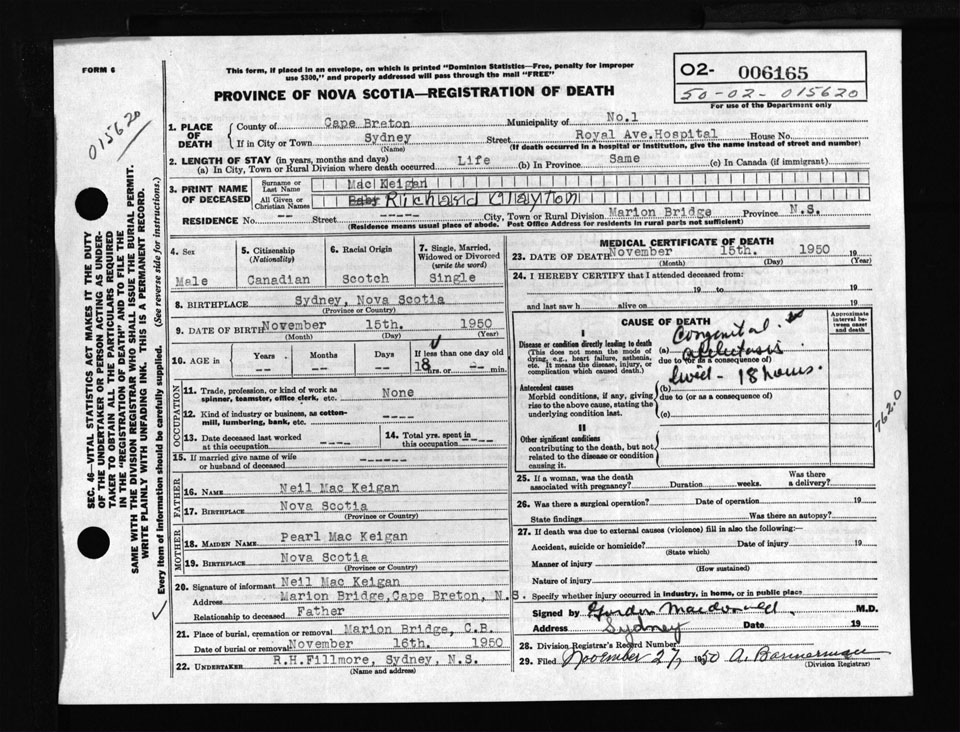 FORM 6
This form, if placed in an envelope, on which is printed "Dominion Statistics—Free, penalty for improper
use $300," and properly addressed will pass through the mail "FREE"
PROVINCE OF NOVA SCOTIA—REGISTRATION OF DEATH
02- 006165
50-02-015620
For use of the Department only
015620
SEC. 46—VITAL STATISTICS ACT MAKES IT THE DUTY
OF THE UNDERTAKER OR PERSON ACTING AS UNDER-
TAKER TO OBTAIN ALL THE PARTICULARS REQUIRED
IN THE "REGISTRATION OF DEATH" AND TO FILE THE
SAME WITH THE DIVISION REGISTRAR WHO SHALL ISSUE THE BURIAL PERMIT.
WRITE PLAINLY WITH UNFADING INK. THIS IS A PERMANENT RECORD.
Every item of information should be carefully supplied. (See reverse side for instructions.)
1. PLACE OF DEATH
County of Cape Breton Municipality of No.1
If in City or Town Sydney Street Royal Ave.Hospital House No.
(Name) (If death occurred in a hospital or institution, give the name instead of street and number)
2. LENGTH OF STAY (in years, months and days)
(a) In City, Town or Rural Division where death occurred Life (b) In Province Same (c) In Canada (if immigrant)
3. PRINT NAME OF DECEASED
Surname or Last Name Mac Keigan
All Given or Christian Names Baby Richard Clayton
RESIDENCE No. -- Street ----- City, Town or Rural Division Marion Bridge Province N.S.
(Residence means usual place of abode. Post Office Address for residents in rural parts not sufficient)
4. Sex Male
5. Citizenship (Nationality) Canadian
6. Racial Origin Scotch
7. Single, Married, Widowed or Divorced (write the word) Single
8. BIRTHPLACE Sydney, Nova Scotia
(Province or Country)
9. DATE OF BIRTH November 15th. 1950
(Month) (Day) (Year)
10. AGE in Years -- Months -- Days -- If less than one day old 18 hrs. or -- min.
OCCUPATION
11. Trade, profession, or kind of work as spinner, teamster, office clerk, etc. None
12. Kind of industry or business, as cotton-mill, lumbering, bank, etc. ----
13. Date deceased last worked at this occupation ----
14. Total yrs. spent in this occupation ----
15. If married give name of wife or husband of deceased ------
FATHER
16. NAME Neil Mac Keigan
17. BIRTHPLACE Nova Scotia
(Province or Country)
MOTHER
18. MAIDEN NAME Pearl Mac Keigan
19. BIRTHPLACE Nova Scotia
(Province or Country)
20. Signature of informant Neil Mac Keigan
Address Marion Bridge,Cape Breton, N.S.
Relationship to deceased Father
21. Place of burial, cremation or removal Marion Bridge, C.B.
Date of burial or removal November 16th. 1950
22. UNDERTAKER R.H.Fillmore, Sydney, N.S.
(Name and address)
MEDICAL CERTIFICATE OF DEATH
23. DATE OF DEATH November 15th. 1950 19
(Month) (Day) (Year)
24. I HEREBY CERTIFY that I attended deceased from:
19 to 19
and last saw h alive on 19
CAUSE OF DEATH
Approximate interval between onset and death
I
Disease or condition directly leading to death
(This does not mean the mode of dying, e.g., heart failure, asthenia, etc. It means the disease, injury, or complication which caused death.)
(a) Congenital atelectasis
due to (or as a consequence of)
lived - 18 hours.
Antecedent causes
Morbid conditions, if any, giving rise to the above cause, stating the underlying condition last.
(b)
due to (or as a consequence of)
(c)
II
Other significant conditions
contributing to the death, but not related to the disease or condition causing it.
762.0
25. If a woman, was the death associated with pregnancy? Duration weeks. Was there a delivery?
26. Was there a surgical operation? Date of operation 19
State findings Was there an autopsy?
27. If death was due to external causes (violence) fill in also the following:—
Accident, suicide or homicide? Date of injury 19
(State which)
Manner of injury
(How sustained)
Nature of injury
Specify whether injury occurred in industry, in home, or in public place
Signed by Gordon Macdonald M.D.
Address Sydney Date 19
28. Division Registrar's Record Number
29. Filed November 27, 1950 A. Bannerman
(Division Registrar)